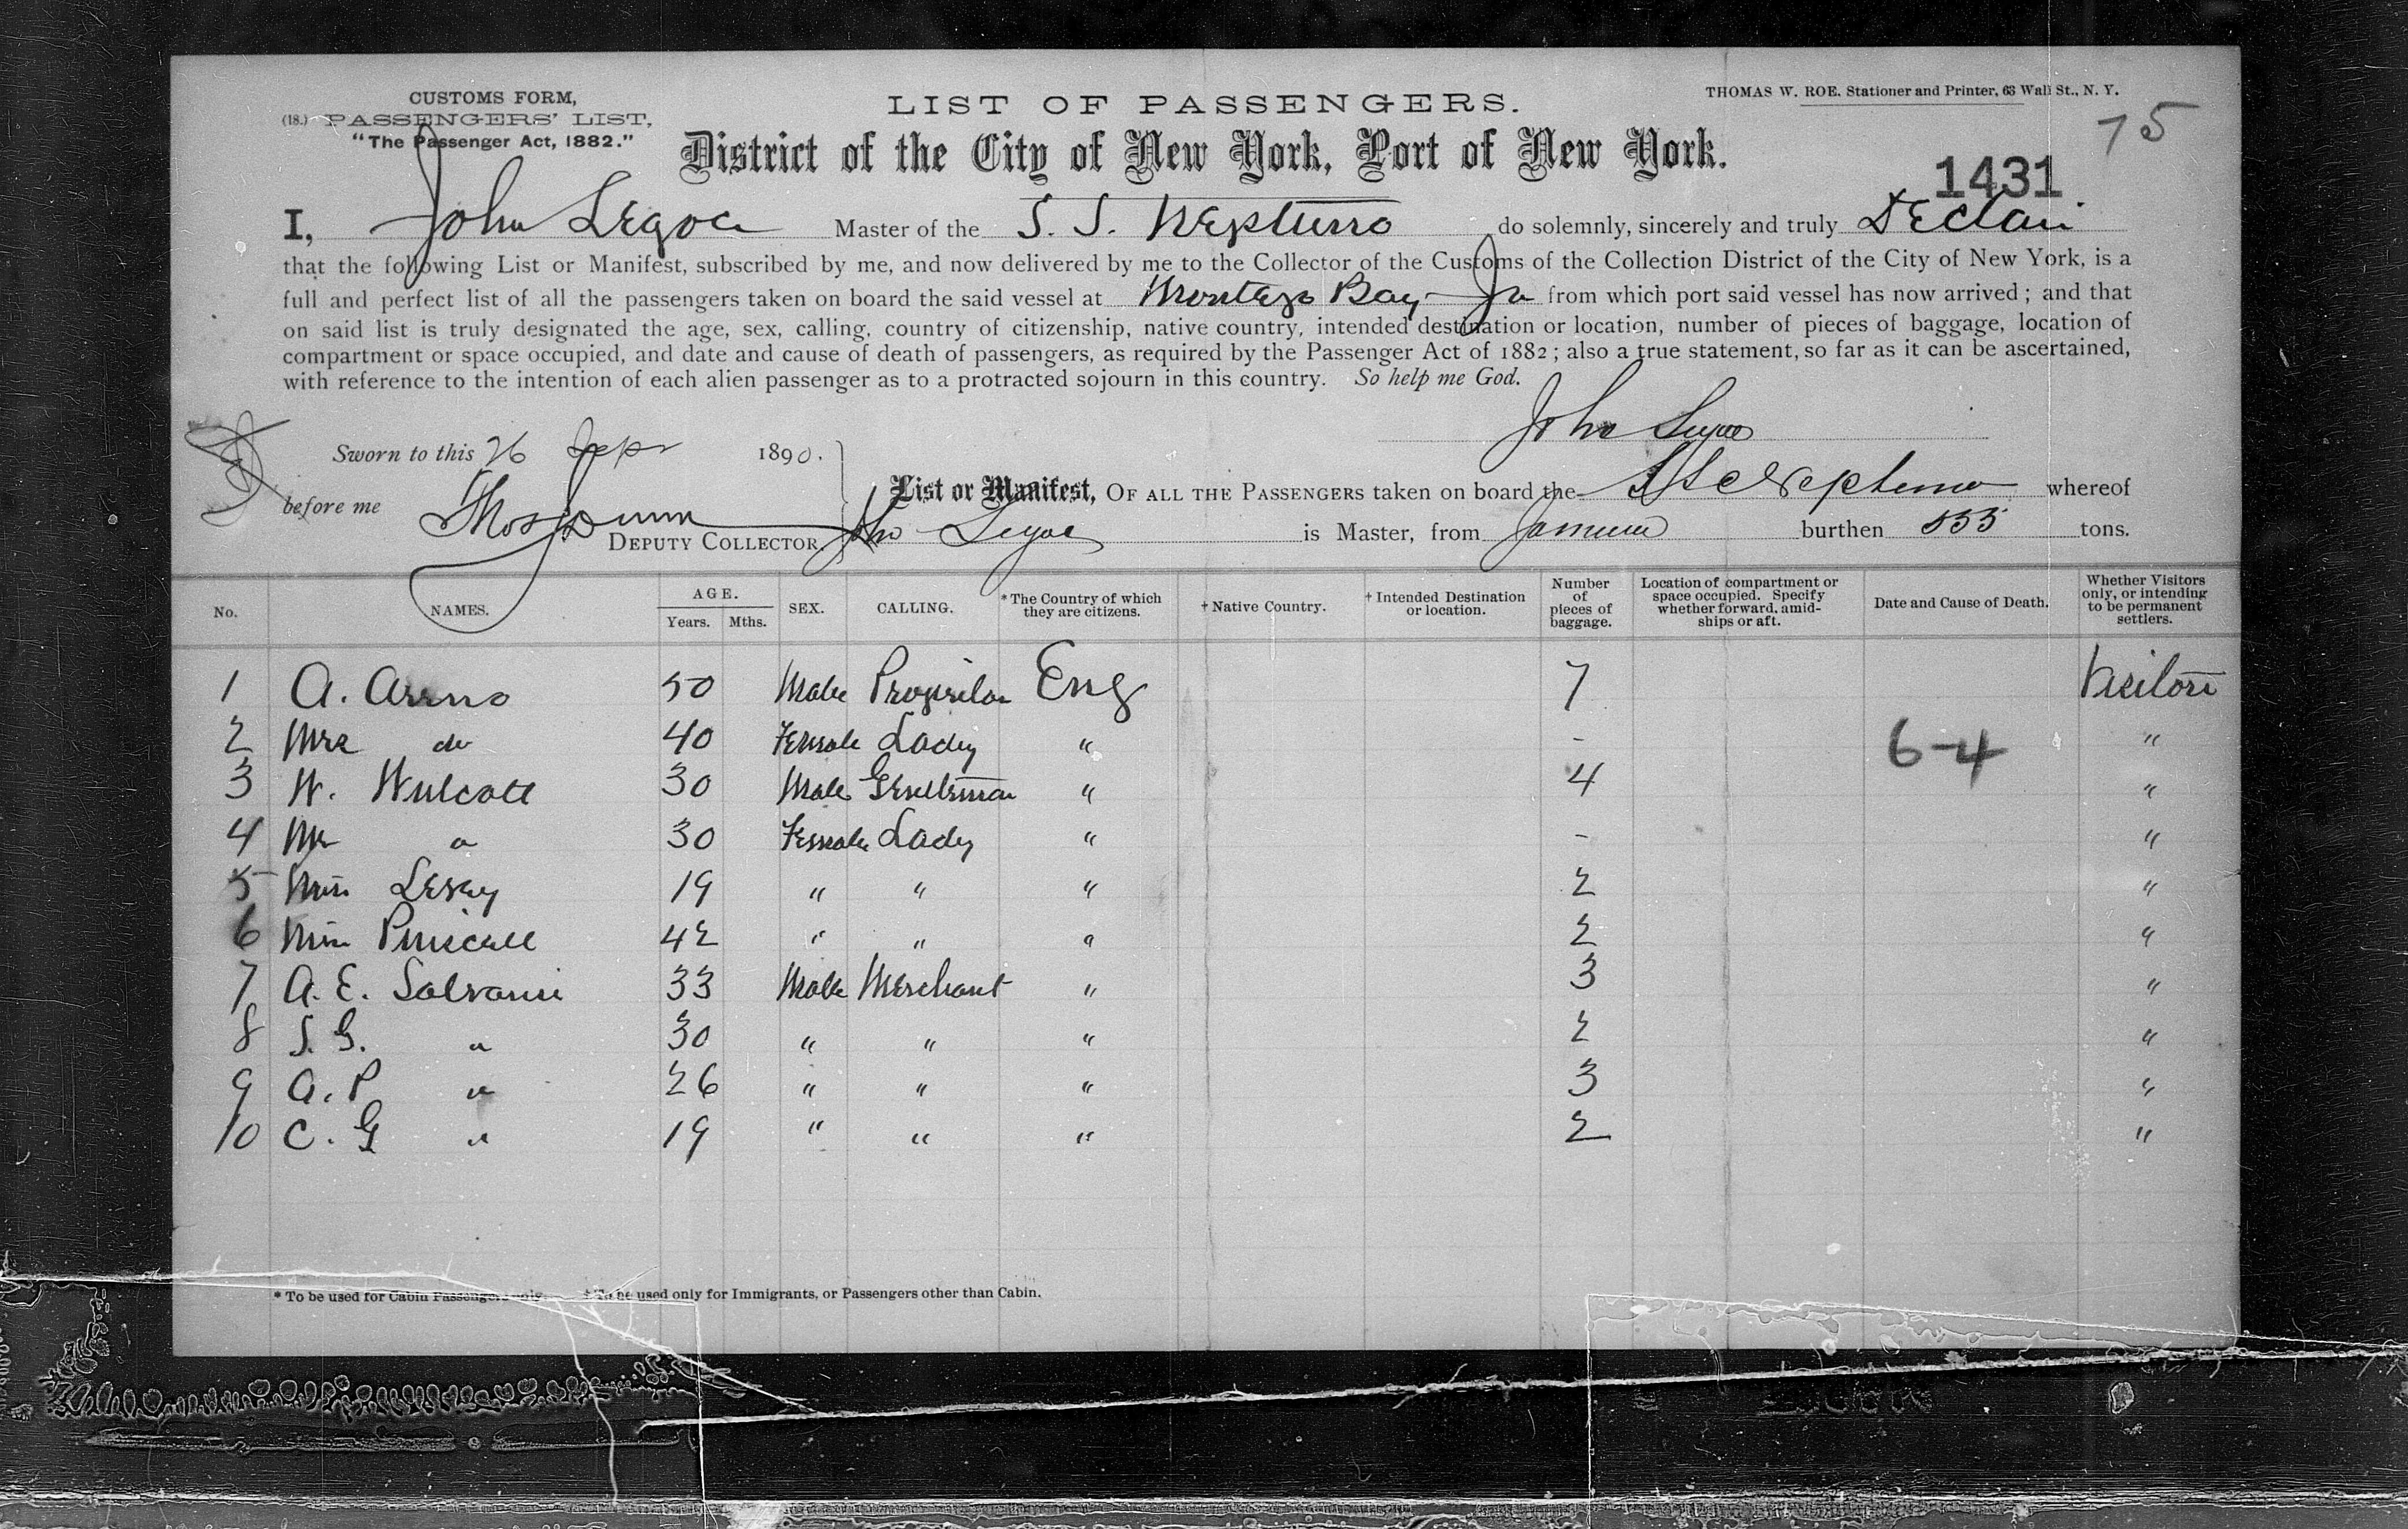 CUSTOMS FORM,
(18.) PASSENGERS' LIST,
"The Passenger Act, 1882."
LIST OF PASSENGERS.
THOMAS W. ROE. Stationer and Printer, 63 Wall St., N. Y.
75
District of the City of New York, Port of New York.
1431
I, John Master of the S. S. do solemnly, sincerely and truly
that the following List or Manifest, subscribed by me, and now delivered by me to the Collector of the Customs of the Collection District of the City of New York, is a
full and perfect list of all the passengers taken on board the said vessel at Montego Bay Ja from which port said vessel has now arrived; and that
on said list is truly designated the age, sex, calling, country of citizenship, native country, intended destination or location, number of pieces of baggage, location of
compartment or space occupied, and date and cause of death of passengers, as required by the Passenger Act of 1882; also a true statement, so far as it can be ascertained,
with reference to the intention of each alien passenger as to a protracted sojourn in this country. So help me God.
John
Sworn to this 26 Sepr 1890.
List or Manifest, OF ALL THE PASSENGERS taken on board the SS whereof
before me Thos Dunn
DEPUTY COLLECTOR. Jno is Master, from burthen 555 tons.
No. NAMES. AGE. Years. Mths. SEX. CALLING. * The Country of which they are citizens. † Native Country. † Intended Destination or location. Number of pieces of baggage. Location of compartment or space occupied. Specify whether forward, amidships or aft. Date and Cause of Death. Whether Visitors only, or intending to be permanent settlers.
1 A. 50 Male Eng 7 Visitors
2 Mrs do 40 Female Lady " - "
6-4
3 W. 30 Male Gentleman " 4 "
4 " 30 Female Lady " - "
5 Miss 19 " " " 2 "
6 42 " " " 2 "
7 A. E. 33 Male Merchant " 3 "
8 S. G. " 30 " " " 2 "
9 A. P " 26 " " " 3 "
10 C. G " 19 " " " 2 "
* To be used for Cabin Passengers only. † To be used only for Immigrants, or Passengers other than Cabin.